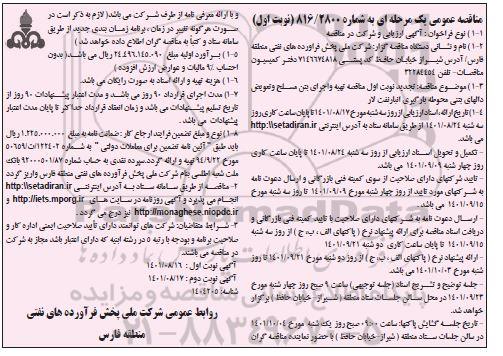 مناقصه عمومی یک مرحله ای به شماره ۸۱۶/۲۸۰۰ (نوبت اول)
۱-۱) نوع فراخوان : آگهی ارزیابی و شرکت در مناقصه
۲-۱) نام و نشانی دستگاه مناقصه گزار: شرکت ملی پخش فرآورده های نفتی منطقه
فارس/ آدرس شیراز خیابان حافظ کد پستی ۷۱۴۶۶۷۴۸۱۸ دفتر کمیسیون
مناقصات- تلفن ۳۲۲۸۴۴۵۴
۳-۱) موضوع مناقصه: تجدید نوبت اول مناقصه تهیه واجرای بتن مسلح وتعویض
دالهای بتنی محوطه بارگیری انبارنفت لار
۴-۱) تاریخ ارائه/اسناد ارزیابی از روز سه شنبه مورخ ۱۴۰۱/۰۸/۱۷ تا پایان ساعت کاری روز
سه شنبه ۱۴۰۱/۰۸/۲۴ از طریق سامانه ستاد به آدرس اینترنتی http:\\setadiran.ir
می باشد.
- تکمیل و تحویل اسناد ارزیابی از روز سه شنبه ۱۴۰۱/۰۸/۲۴ تا پایان ساعت کاری
روز چهار شنبه ۱۴۰۱/۰۹/۰۹ می باشد.
- تایید شرکتهای دارای صلاحیت از سوی کمیته فنی بازرگانی و ارسال دعوت نامه
به شرکتهای مورد تایید از روز چهار شنبه مورخ ۱۴۰۱/۰۹/۰۹ تا روز سه شنبه مورخ
۱۴۰۱/۰۹/۱۵ می باشد
- ارسال دعوت نامه به شرکتهای دارای صلاحیت با تایید کمیته فنی بازرگانی و
دریافت اسناد مناقصه برای ارائه پیشنهاد نرخ (پاکتهای الف ، ب، ج) از روز سه شنبه
۱۴۰۱/۰۹/۱۵ تا پایان ساعت کاری دو شنبه ۱۴۰۱/۰۹/۲۱
- ارائه پیشنهاد نرخ (پاکتهای الف ، ب، ج ) از روز دو شنبه ۱۴۰۱/۰۹/۲۱ تا روز
شنبه مورخ ۱۴۰۱/۱۰/۰۳ می باشد
- جلسه توضیح و تشریح اسناد (جلسه توجیهی) ساعت ۹ صبح روز چهار شنبه مورخ
۱۴۰۱/۰۹/۲۳ در محل سالن جلسات ستاد منطقه ( شیراز- خیابان حافظ ) برگزار
خواهد شد.
- تاریخ جلسه گشایش پاکتها: ساعت ۰۹:۰۰ صبح روز یک شنبه مورخ ۱۴۰۱/۱۰/۰۴
در سالن جلسات ستاد منطقه ( شیراز- خیابان حافظ ) با حضور نماینده مناقصه گران
و یا ارائه معرفی نامه از طرف شرکت می باشد( لازم به ذکر است در
صورت هرگونه تغییر در زمان ، برنامه زمان بندی جدید از طریق
سامانه ستاد و کتباً به مناقصه گران اطلاع داده خواهد شد )
۵-۱) برآورد اولیه مبلغ ۲۴.۴۹۶.۱۴۵.۰۹۰ ریال می باشد.( بدون
احتساب ۹% مالیات و عوارض ارزش افزوده )
۶-۱) هزینه تهیه و ارائه اسناد به صورت رایگان می باشد.
۷-۱) مدت اجرای قرارداد ۹۰ روز می باشد و مدت اعتبار پیشنهادات ۹۰ روز از
تاریخ تسلیم پیشنهادات می باشد و زمان انعقاد قرارداد حداکثر تا پایان مدت اعتبار
پیشنهادات می باشد .
۸-۱) نوع و مبلغ تضمین فرایند ارجاع کار : ضمانت نامه به مبلغ ۱.۲۲۵.۰۰۰.۰۰۰ ریال می
باید طبق " آئین نامه تضمین برای معاملات دولتی " به شماره ۱۲۳۴۰۲/ت۵۰۶۵۹
مورخ ۹۴/۹/۲۲ تهیه و ارائه گردد.سپرده نقدی به حساب شماره ۹۲۰۰۰۵۰۱۸۷ بانک
ملت شعبه اطلسی بنام شرکت ملی پخش فرآورده های نفتی منطقه فارس واریز گردد
۲- مناقصه از طریق سامانه ستاد به آدرس اینترنتی http:\\setadiran.ir
انجام می پذیرد و آگهی روزنامه در سایت های http://iets.mporg.ir و
http://monaghese.niopdc.ir نیز درج می گردد .
۳- شرایط متقاضیان: شرکت های توانمند دارای تایید صلاحیت ایمنی اداره کار و
صلاحیت برنامه و بودجه با رتبه ۵ در رشته ابنیه که دارای اعتبار باشد مجاز به شرکت
در مناقصه می باشند.
آگهی نوبت اول : ۱۴۰۱/۰۸/۱۶
آگهی نوبت دوم : ۱۴۰۱/۰۸/۱۷
شناسه: ۱۴۰۴۲۰۵
روابط عمومی شرکت ملی پخش فرآورده های نفتی
منطقه فارس